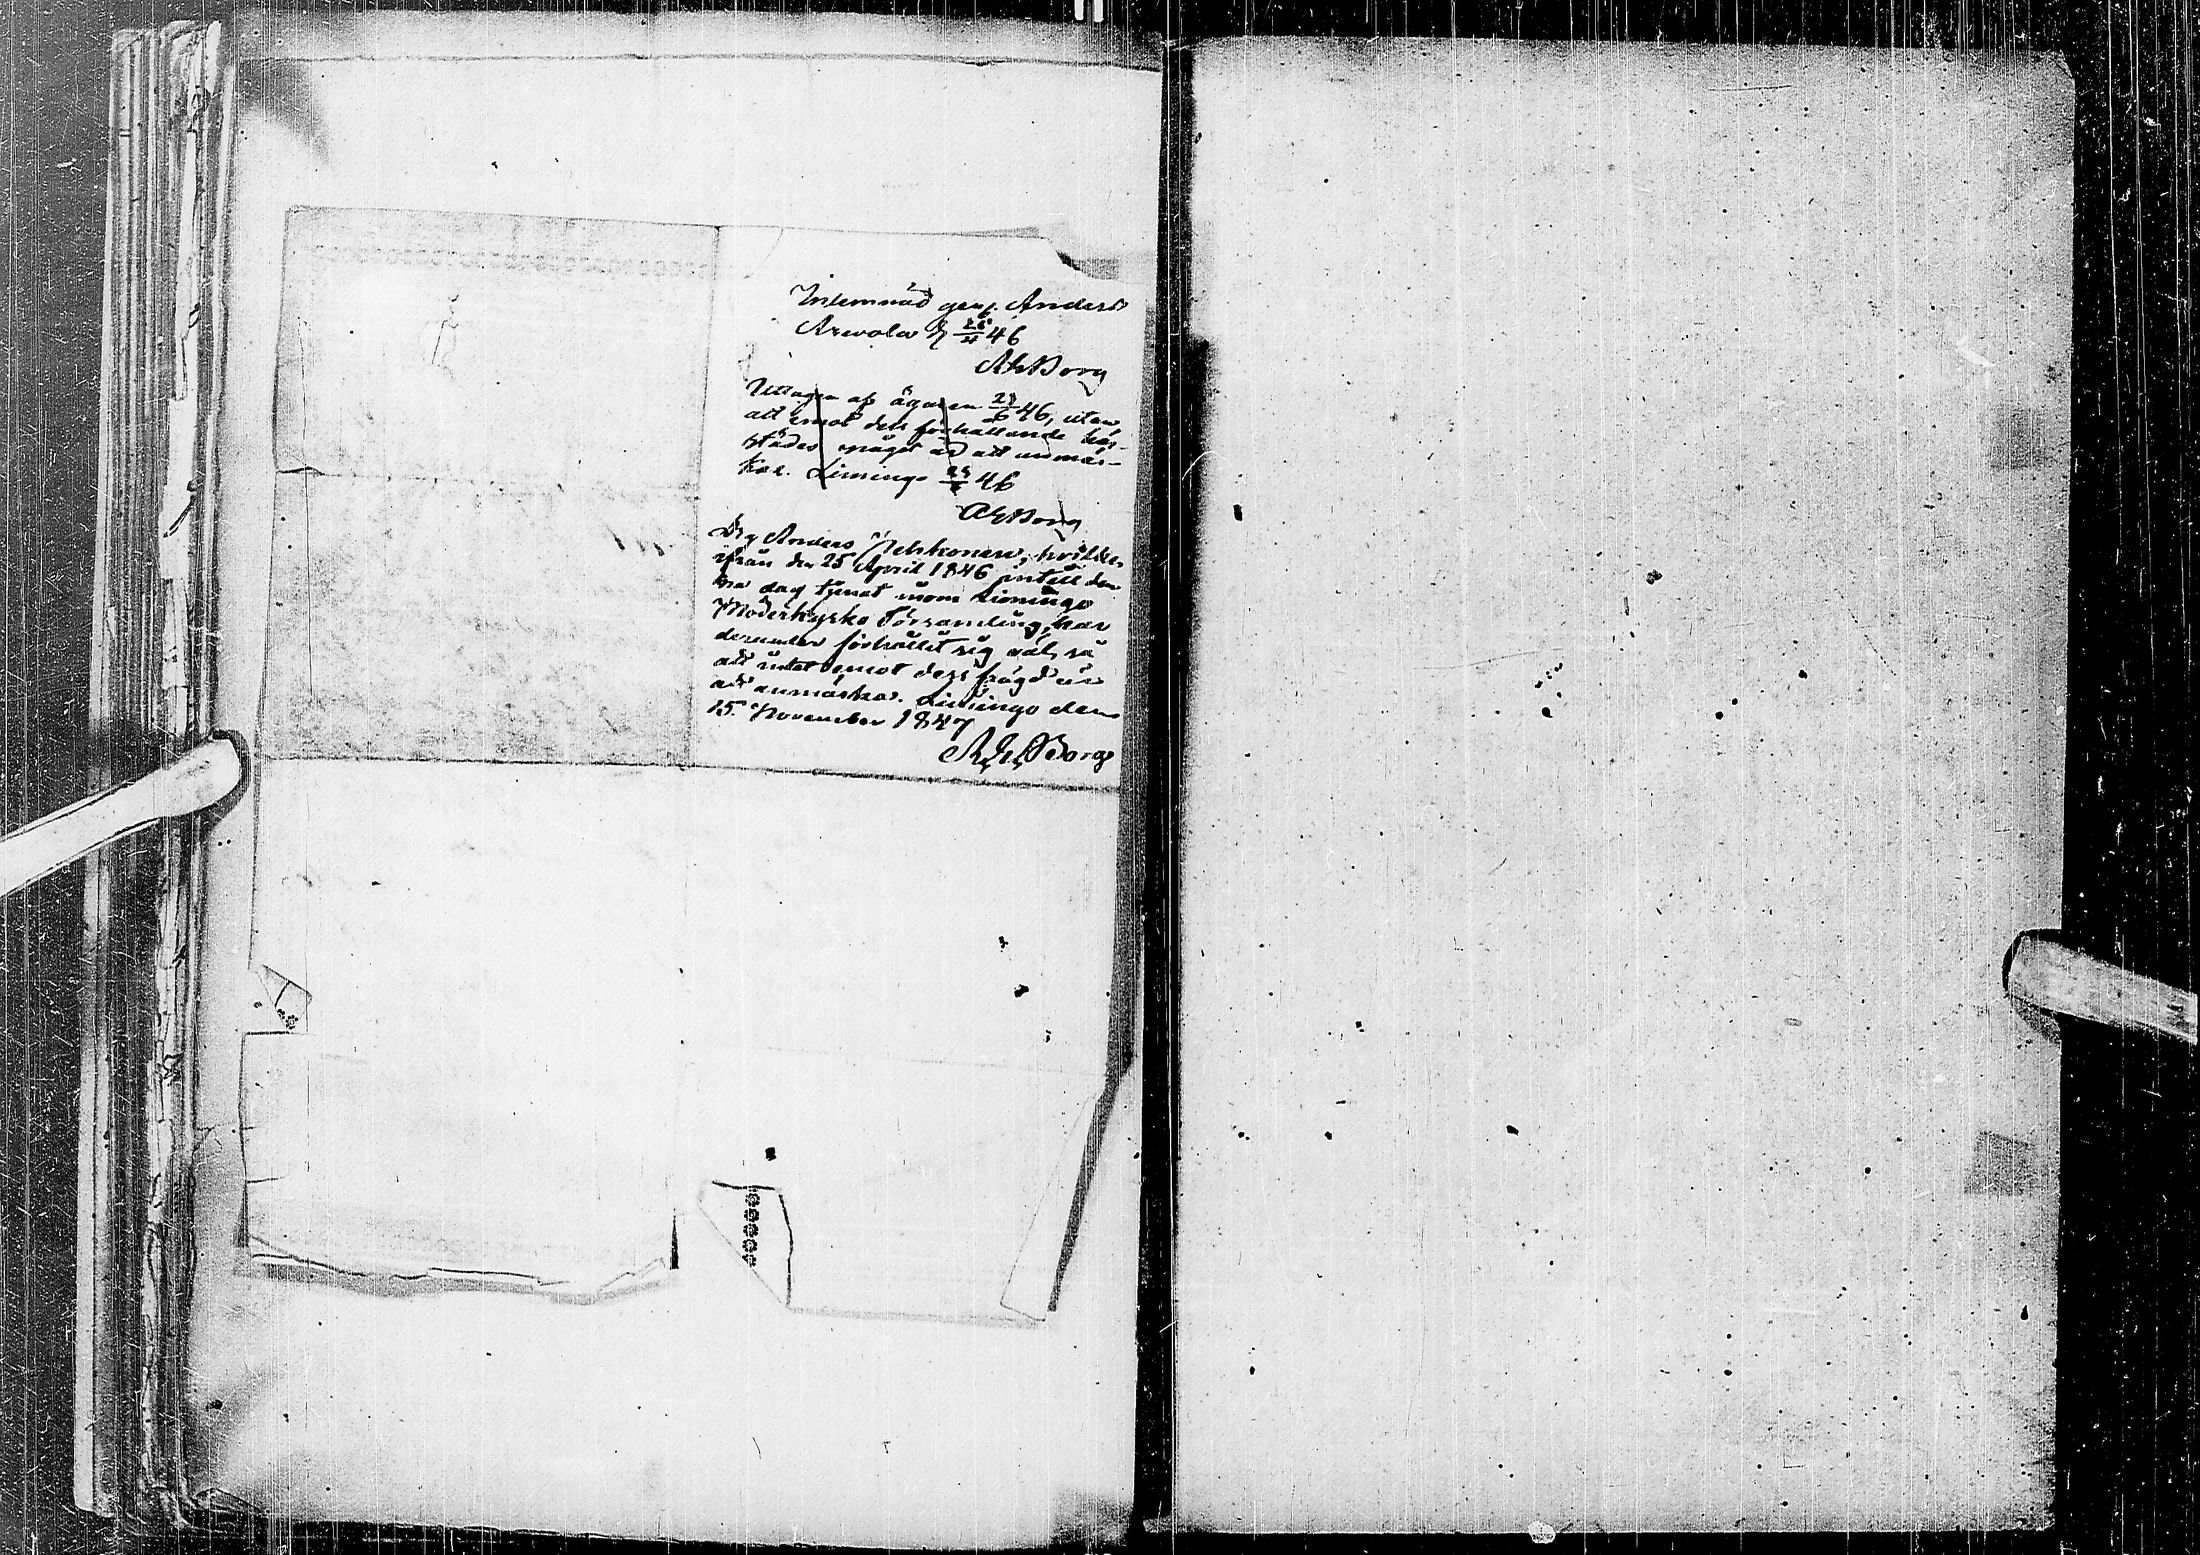 Inlemnad gen. Anders
Arwola d. 25/4 46
A E Borg
Uttagen af ägaren 29/6 46, utan
att emot dess förhållande här-
städes något är att anmär-
ka. Limingo 29/6 46
A E Borg
Dr. Anders Pehkonen, hvilken
ifrån den 25 April 1846 intill den-
na dag tjenat inom Limingo
Moderkyrko Församling, har
derunder förhållit sig väl, så
att intet emot dess frägd är
att anmärka. Limingo den
15 November 1847
A. E. Borg